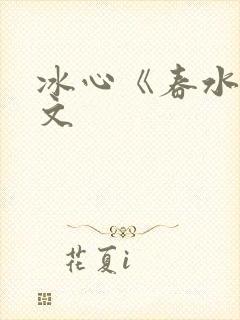 冰心《春水
文
花夏i